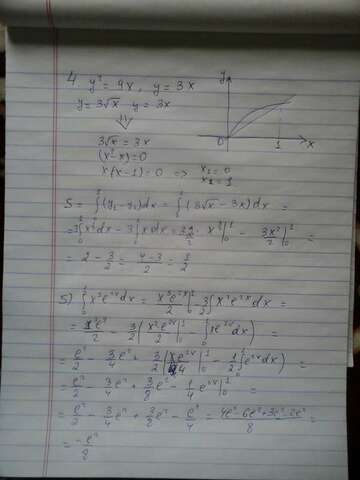 4 y² = 9x, y = 3x
y = 3√x y = 3x
y
3√x = 3x
(x²-x)=0
x(x-1) = 0 => x₁ = 0
x₂ = 1
0 1 x
S = ∫₀¹(y₁-y₂)dx = ∫₀¹(3√x - 3x)dx =
= 2 - 3/2 = (4-3)/2 = 1/2
5) ∫₀¹ x³e²ˣdx = x³e²ˣ/2 |₀¹ - 3/2 ∫₀¹ x²e²ˣdx =
= e²/2 - 3/2 (x²e²ˣ/2 |₀¹ - ∫₀¹ xe²ˣdx) =
= e²/2 - 3/4 e² + 3/2 ( |₀¹ - 1/2 ∫₀¹ e²ˣdx) =
= e²/2 - 3/4 e² + 3/8 e² - 1/4 e²ˣ |₀¹ =
= e²/2 - 3/4 e² + 3/8 e² - e²/4 = (4e² - 6e² + 3e² - 2e²)/8 =
= -e²/8